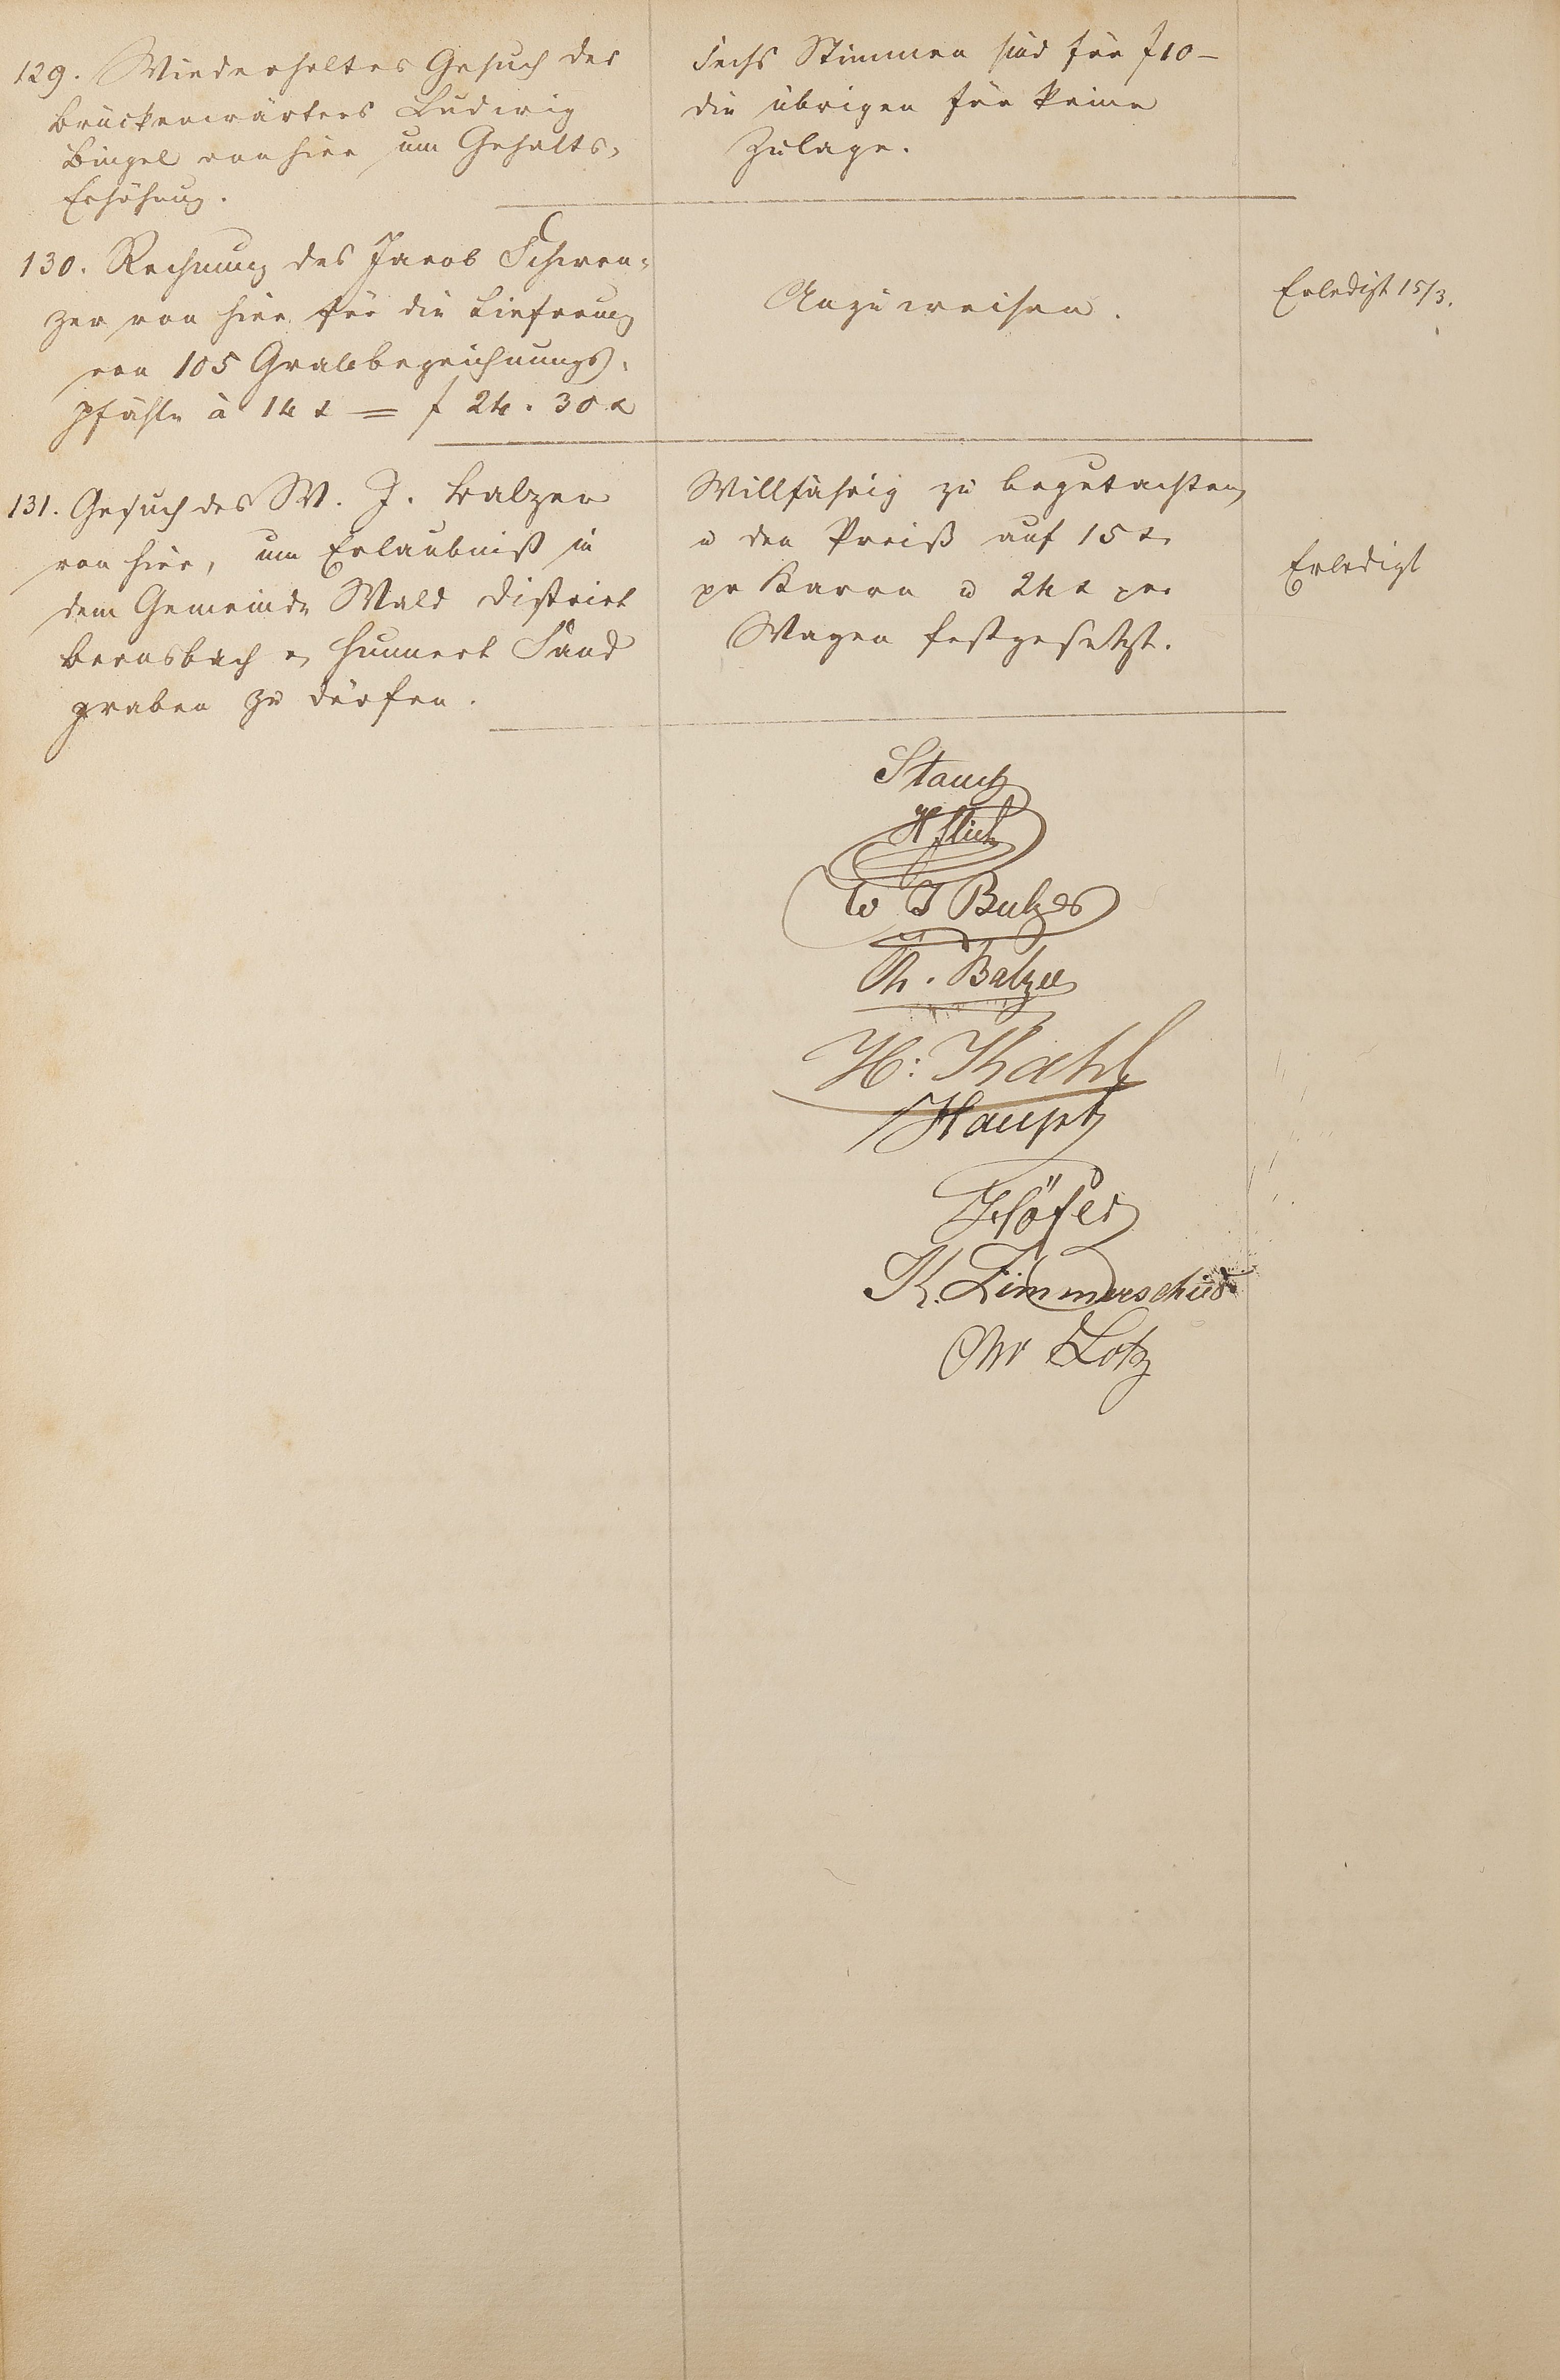 129. Wiederholtes Gesuch des
Brückenwärters Ludwig
Bingel von hier um Gehalts-
Erhöhung.
Sechs Stimmen sind für f 10 –
die übrigen für keine
Zulage.
130. Rechnung des Jacob Schwen-
zer von hier für die Liefrung
von 105 Grabbezeichnungs-
pfähle à 14 x = f 24. 30 x
Anzuweisen.
Erledigt 15/3.
131. Gesuch des W. J. Balzer
von hier, um Erlaubniß in
dem Gemeinde Wald District
Bernsbach Hunnert Sand
graben zu dürfen.
Willfährig zu begutachten,
u den Preiß auf 15 x
pr Karrn u 24 x per
Wagen festgesetzt.
Erledigt
Stauch
W J Balzer
Th. Balzer
H: Kahl
Haupt
Höfer
K. Zimmerschied
Lotz